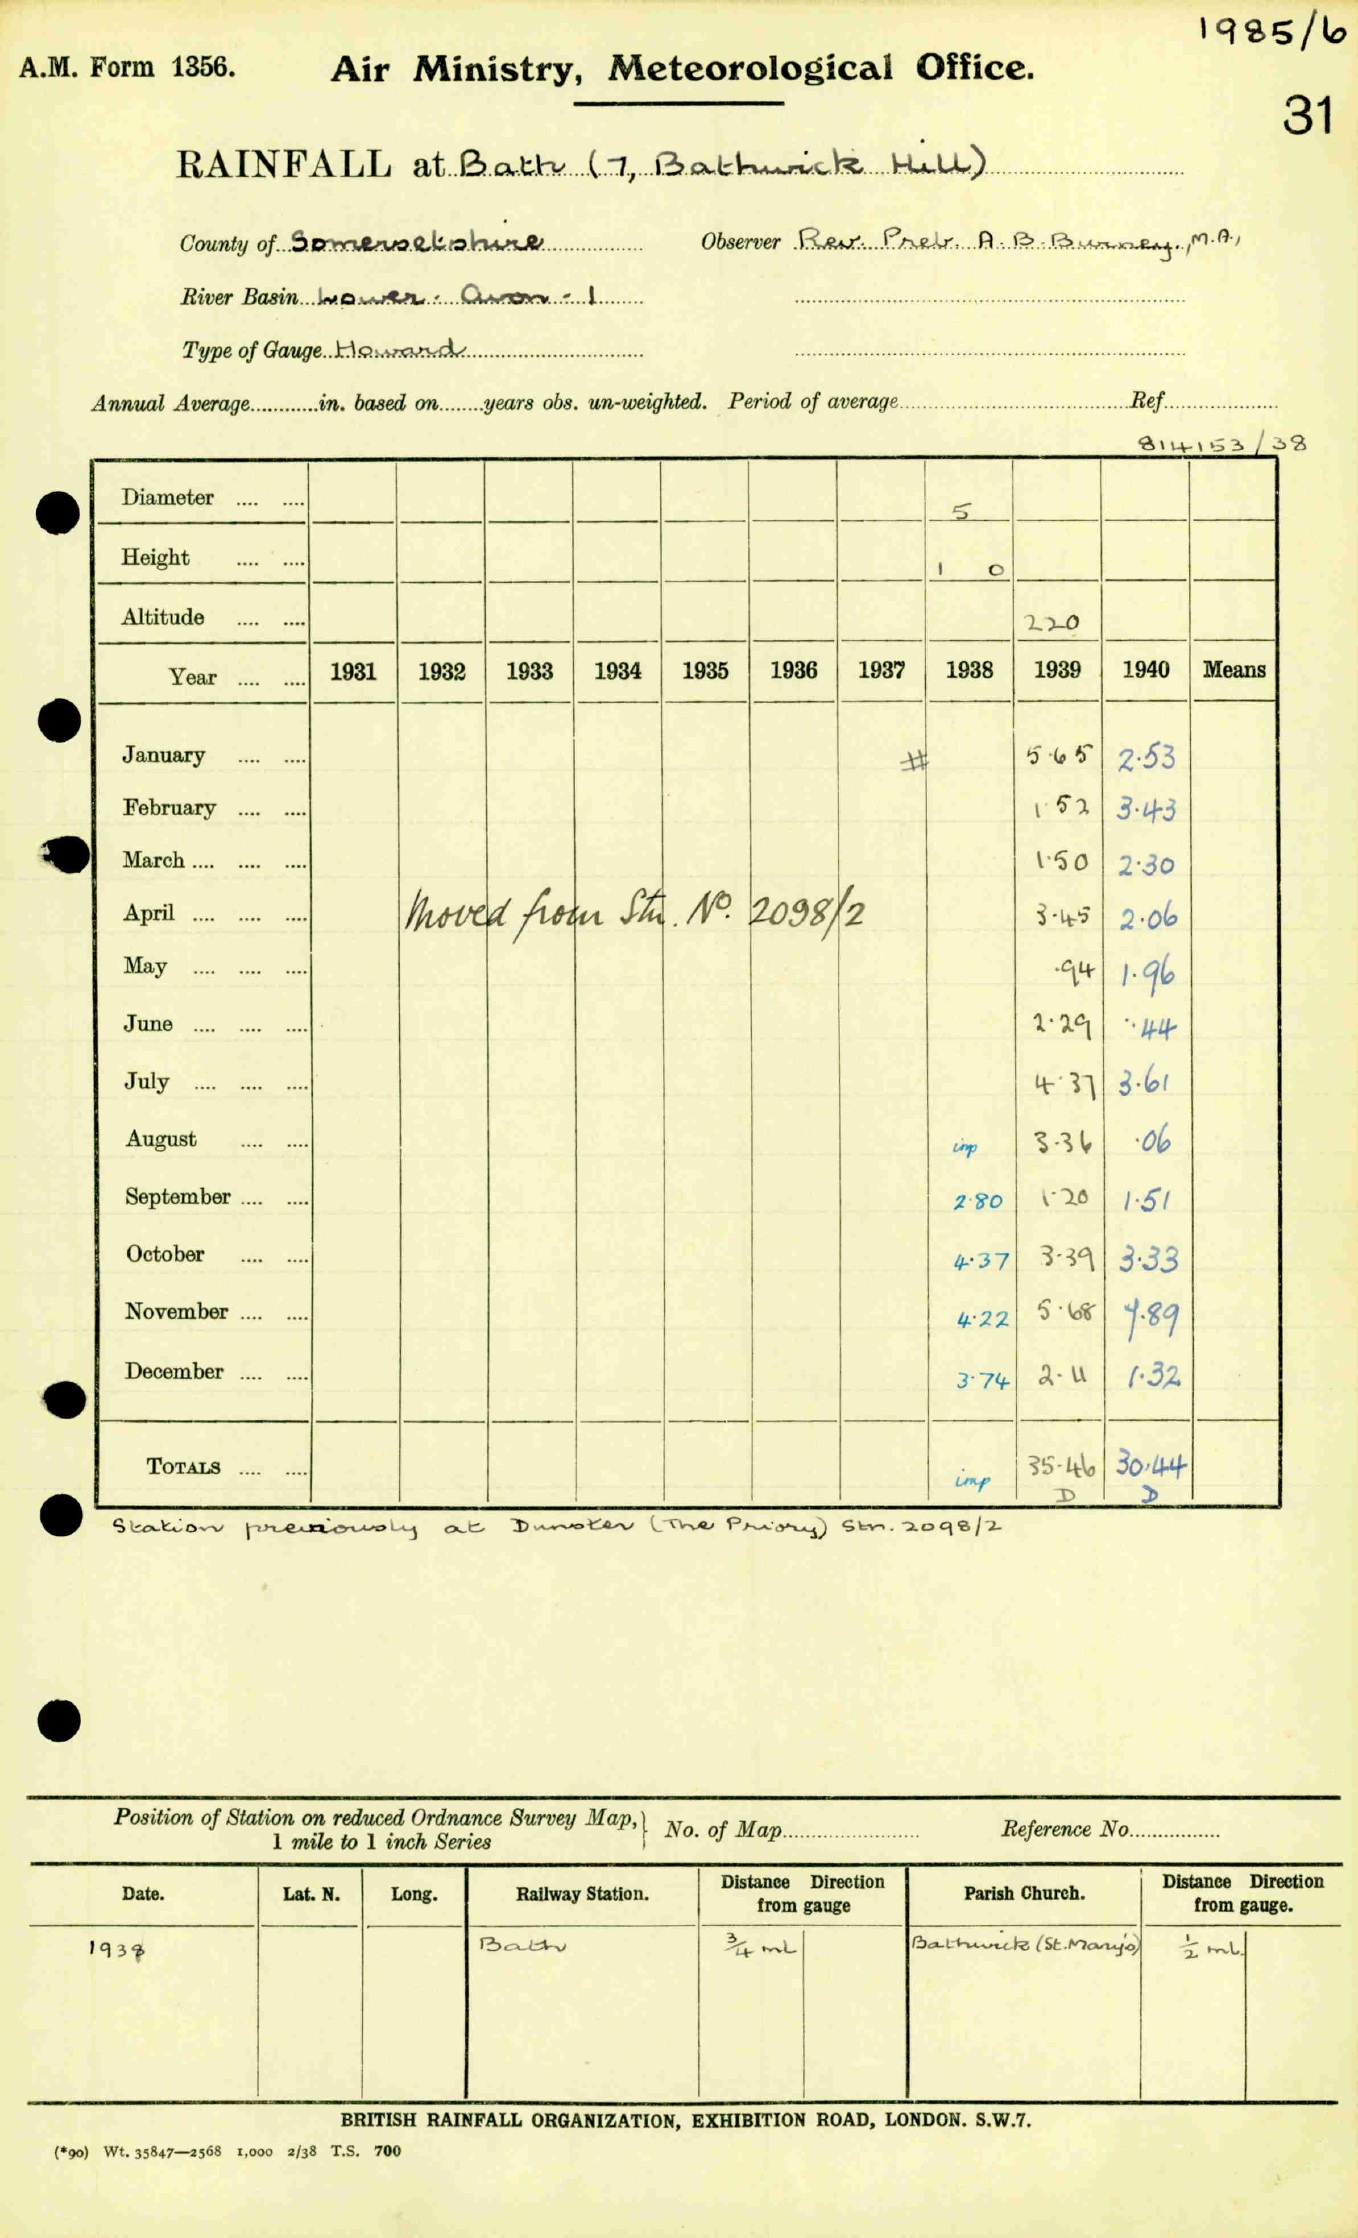 1985/6
A.M. Form 1356. Air Ministry, Meteorological Office.
31
RAINFALL at Bath (7, Bathwick Hill)
County of Somersetshire Observer Rev. Preb. A. B. Burney, M.A.,
River Basin Lower Avon - 1
Type of Gauge Howard
Annual Average............in. based on........years obs. un-weighted. Period of average........................................Ref....................
814153/38
Diameter .... .... 5
Height .... .... 1 0
Altitude .... .... 220
Year .... .... 1931 1932 1933 1934 1935 1936 1937 1938 1939 1940 Means
January .... .... # 5.65 2.53
February .... .... 1.52 3.43
March .... .... .... 1.50 2.30
April .... .... .... Moved from Stn. No. 2098/2 3.45 2.06
May .... .... .... .94 1.96
June .... .... .... 2.29 .44
July .... .... .... 4.37 3.61
August .... .... imp 3.36 .06
September .... .... 2.80 1.20 1.51
October .... .... 4.37 3.39 3.33
November .... .... 4.22 5.68 7.89
December .... .... 3.74 2.11 1.32
TOTALS .... .... imp 35.46 30.44
D D
Station previously at Dunster (The Priory) Stn. 2098/2
Position of Station on reduced Ordnance Survey Map, 1 mile to 1 inch Series } No. of Map........................ Reference No................
Date. Lat. N. Long. Railway Station. Distance Direction from gauge Parish Church. Distance Direction from gauge.
1938 Bath 3/4 ml Bathwick (St. Mary's) 1/2 ml.
BRITISH RAINFALL ORGANIZATION, EXHIBITION ROAD, LONDON. S.W.7.
(*90) Wt. 35847—2568 1,000 2/38 T.S. 700